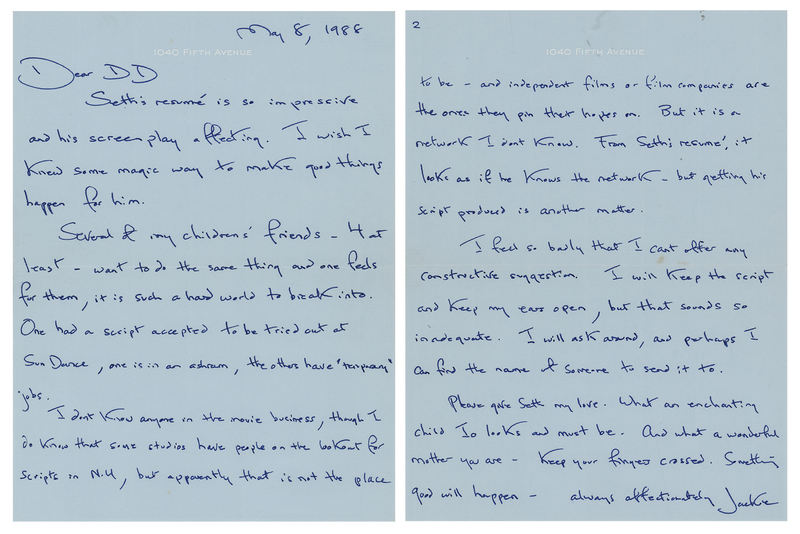 May 8, 1988
1040 FIFTH AVENUE
Dear DD
Seth's resumé is so impressive
and his screenplay affecting. I wish I
knew some magic way to make good things
happen for him.
Several of my children's friends – 4 at
least – want to do the same thing and one feels
for them, it is such a hard world to break into.
One had a script accepted to be tried out at
Sun Dance, one is in an ashram, the others have "temporary"
jobs.
I dont know anyone in the movie business, though I
do know that some studios have people on the lookout for
scripts in N.Y, but apparently that is not the place
2
1040 FIFTH AVENUE
to be – and independent films or film companies are
the ones they pin their hopes on. But it is a
network I dont know. From Seth's resumé, it
looks as if he knows the network – but getting his
script produced is another matter.
I feel so badly that I cant offer any
constructive suggestion. I will keep the script
and keep my ears open, but that sounds so
inadequate. I will ask around, and perhaps I
can find the name of someone to send it to.
Please give Seth my love. What an enchanting
child Io looks and must be. And what a wonderful
mother you are – Keep your fingers crossed. Something
good will happen – always affectionately Jackie